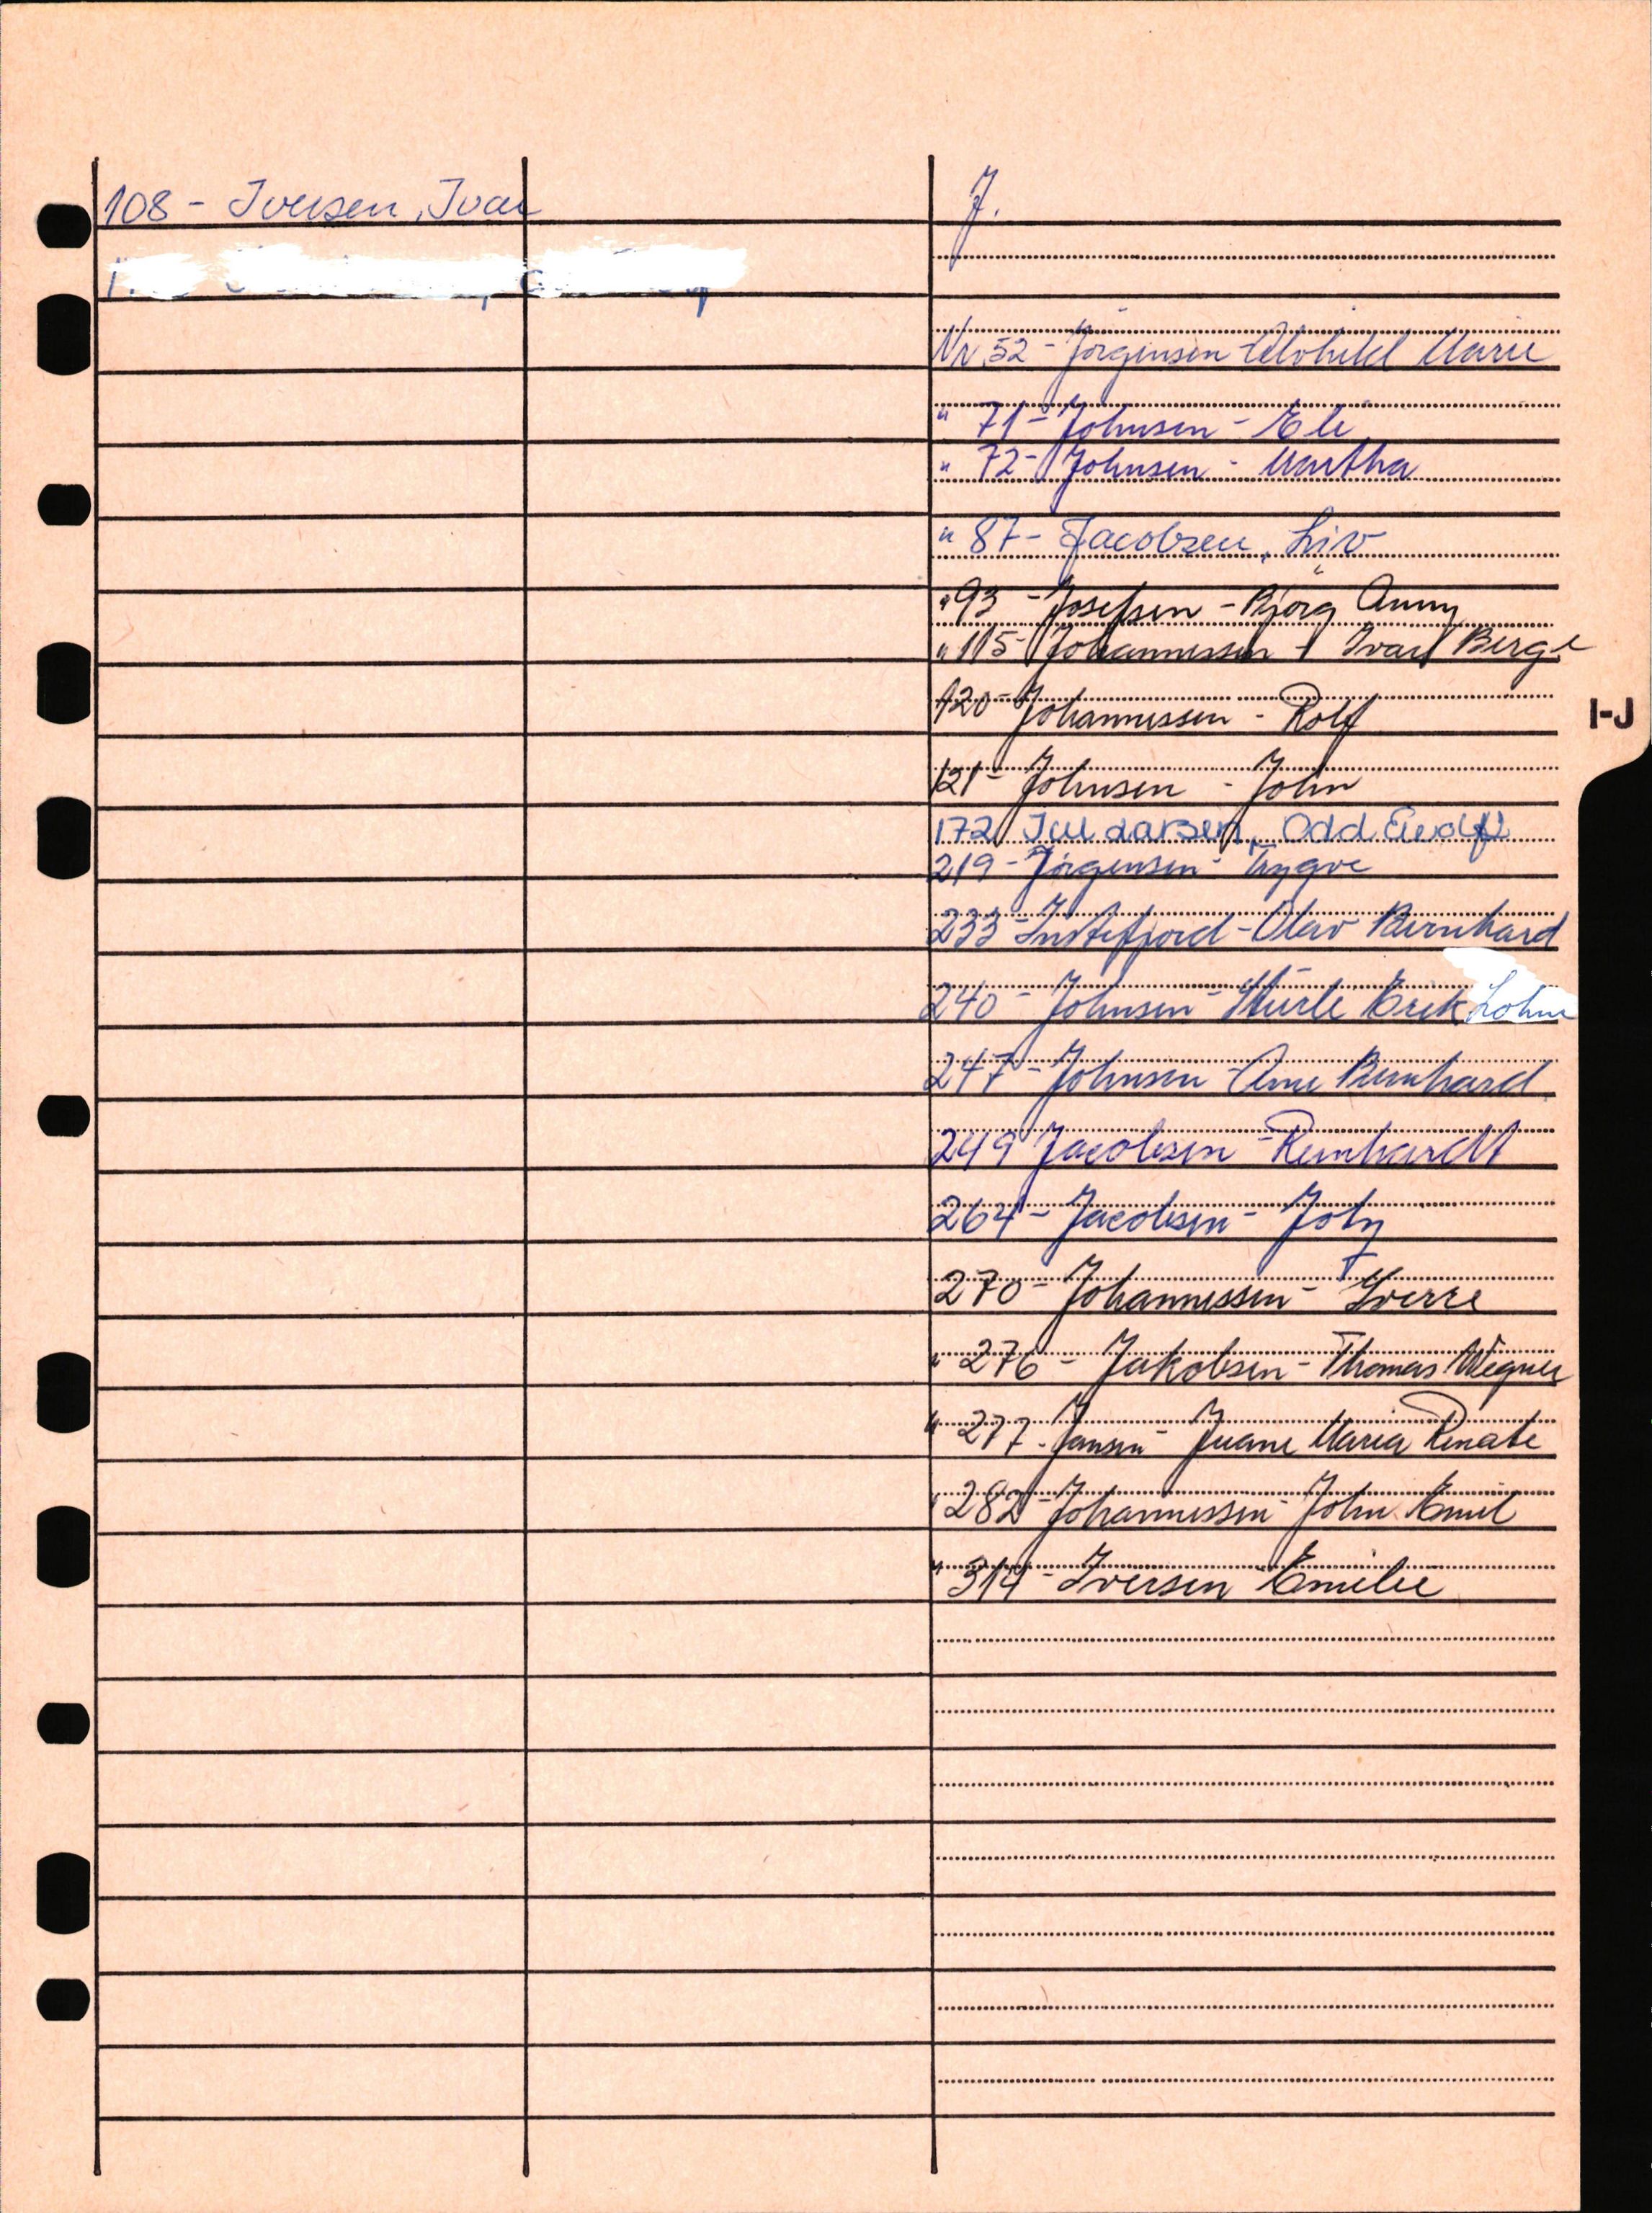 108 - Iversen, Ivar
J.
Nr. 52 - Jörgensen - Alvhild Marie
" 71 - Johnsen - Eli
" 72 - Johnsen - Martha
" 87 - Jacobsen, Liv
" 93 - Josefsen - Bjørg Anny
" 115 - Johannessen - Ivar Berge
120 - Johannessen - Rolf
I-J
121 - Johnsen - John
172 Jul Larsen, Odd
219 - Jörgensen - Trygve
233 - Instefjord - Olav Bernhard
240 - Johnsen - Sturle Erik Lohne
247 - Johnsen - Arne Bernhard
249 Jacobsen - Reinhardt
264 - Jacobsen -
270 - Johannessen - Sverre
" 276 - Jakobsen - Thomas Wegner
" 277 - Jansen - Maria Renate
" 282 - Johannessen - John Emil
" 314 - Iversen Emilie